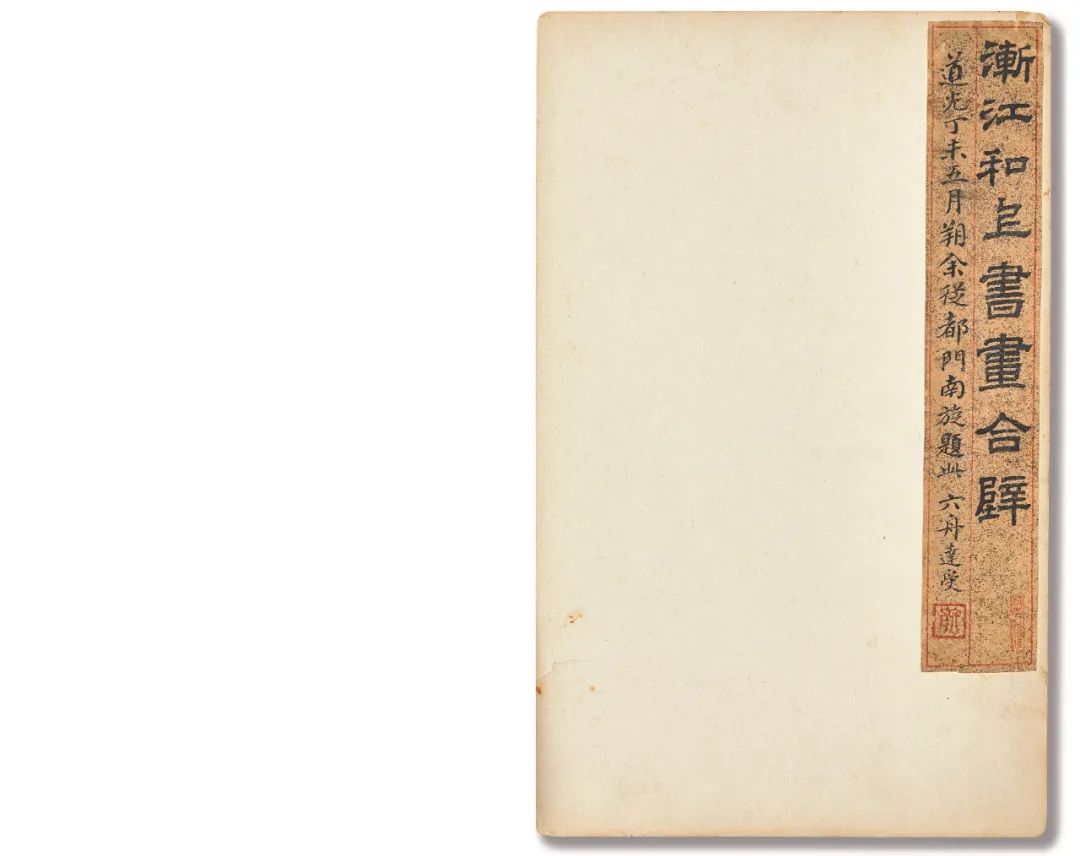 漸江和上書畫合璧
道光丁未五月朔余從都門南旋題此 六舟達受